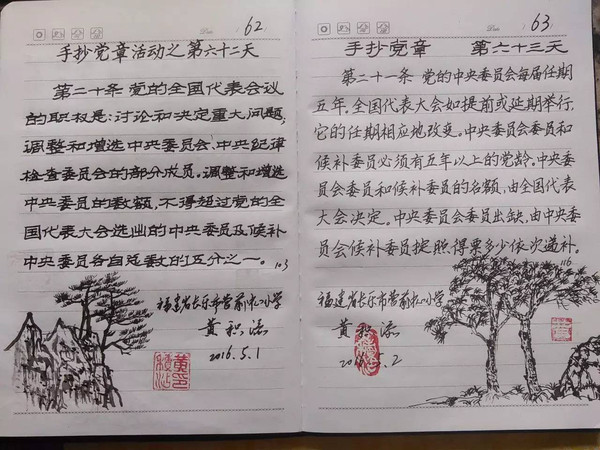 62
手抄党章活动之第六十二天
第二十条 党的全国代表会议
的职权是:讨论和决定重大问题;
调整和增选中央委员会、中央纪律
检查委员会的部分成员。调整和增选
中央委员的数额,不得超过党的全
国代表大会选出的中央委员及候补
中央委员各自总数的五分之一。
103
福建省长乐市营前中心小学
黄
2016.5.1
63
手抄党章 第六十三天
第二十一条 党的中央委员会每届任期
五年。全国代表大会如提前或延期举行,
它的任期相应地改变。中央委员会委员和
候补委员必须有五年以上的党龄。中央委
员会委员和候补委员的名额,由全国代表
大会决定。中央委员会委员出缺,由中央委
员会候补委员按照得票多少依次递补。
116
福建省长乐市营前中心小学
黄
5.2